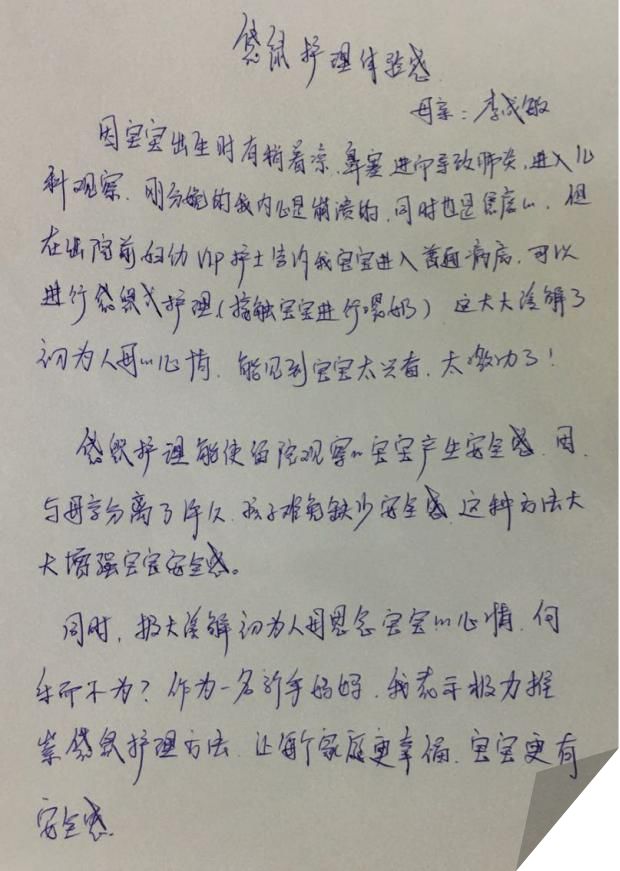 袋鼠护理体验感
母亲：李成敏
因宝宝出生时有稍着凉，鼻塞进而导致肺炎，进入儿
科观察，刚分娩的我内心是崩溃的，同时也是焦虑的，但
在出院前妇幼VIP护士告诉我宝宝进入普通病房，可以
进行袋鼠式护理（接触宝宝进行喂奶）这大大缓解了
初为人母的心情，能见到宝宝太兴奋，太激动了！
袋鼠护理能使留院观察的宝宝产生安全感，因
与母亲分离了许久，孩子难免缺少安全感，这种方法大
大增强宝宝安全感。
同时，极大缓解初为人母思念宝宝的心情，何
乐而不为？作为一名新手妈妈，我表示极力推
崇袋鼠护理方法，让每个家庭更幸福，宝宝更有
安全感